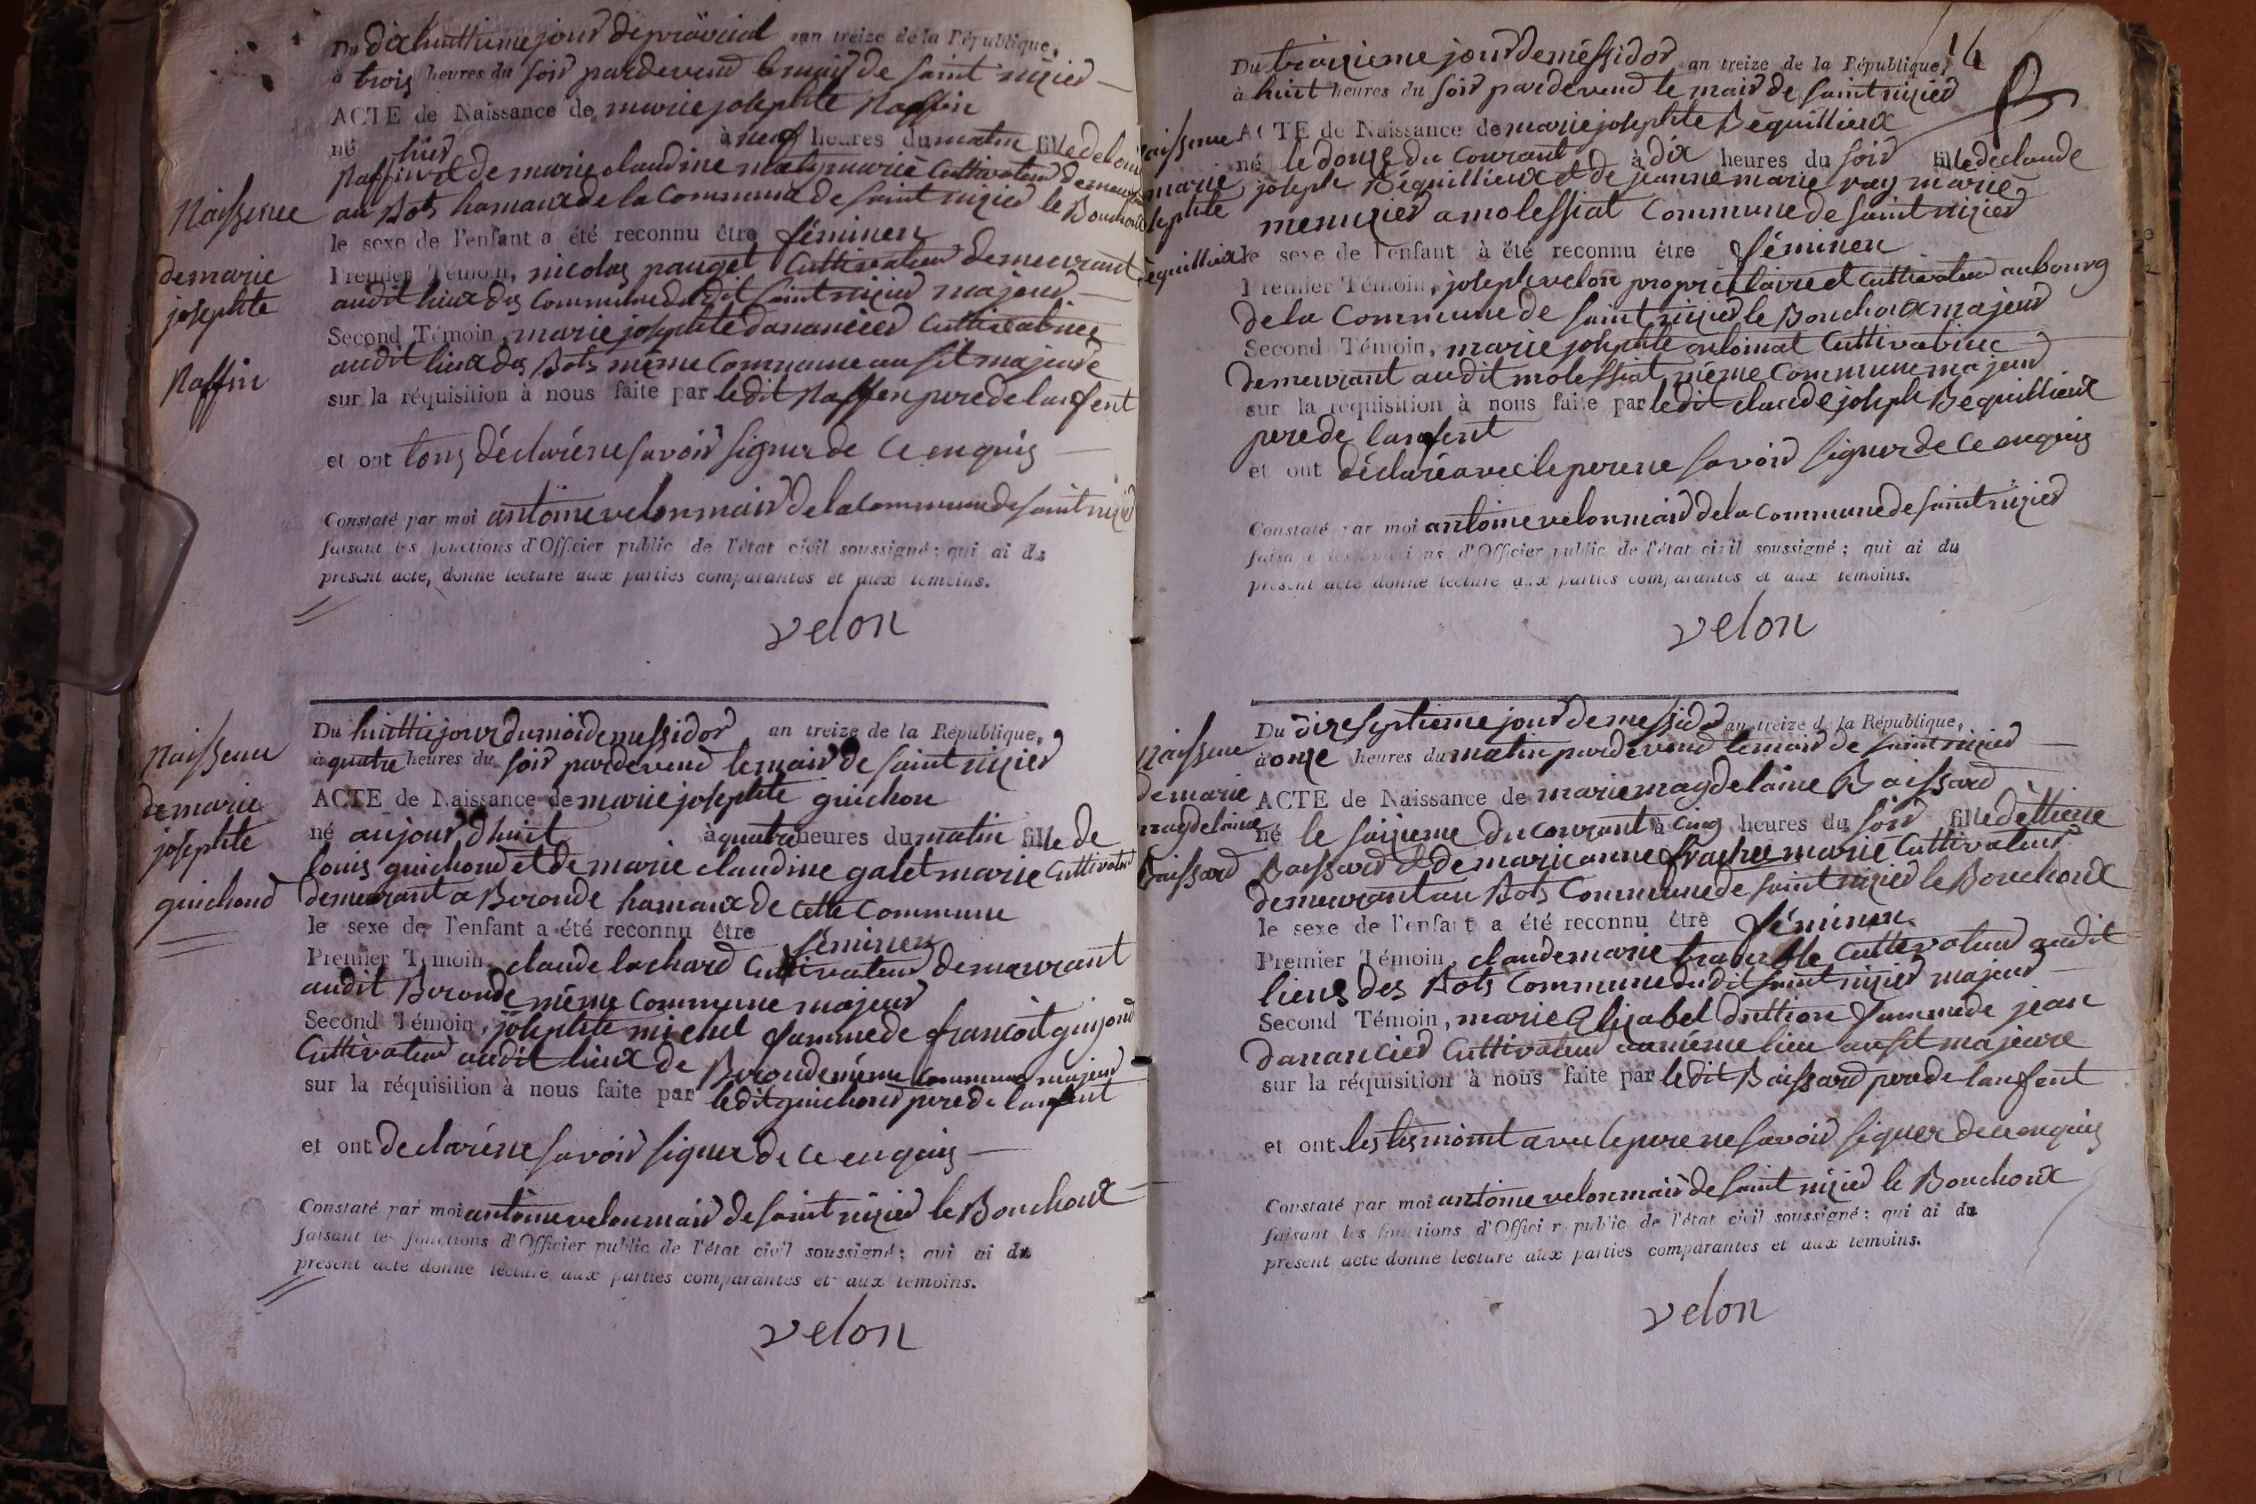 Du dixhuittieme jour de prairial an treize de la République,
à trois heures du soir pardevend le mair de saint nizier
ACTE de Naissance de marie josephte Naffin
né hier à neuf heures du matin fille de
Naffin et de marie claudine marié Cultivateur
au Bots hamaux de la Commune de saint nizier le Bouchoux
le sexe de l'enfant a été reconnu être féminen
Premier Témoin, nicolas pauget Cultivateur demeurant
audit lieux des Commune dudit saint nizier majeur
Second Témoin, marie josephte danancier Cultivatrice
audit lieux des Bots même Commune ausit majeure
sur la réquisition à nous faite par ledit Naffen pere de lanfent
et ont tous déclaré ne savoir signer de ce enquis
Constaté par moi antoine velon mair de la Commune de saint nizier
faisant les fonctions d'Officier public de l'état civil soussigné; qui ai du
présent acte, donné lecture aux parties comparantes et aux témoins.
velon
Naissence
de marie
josephte
Naffin
Du huittie jour du mois de messidor an treize de la République,
à quatre heures du soir pardevend le mair de saint nizier
ACTE de Naissance de marie josephte guichon
né aujourdhuit à quatre heures du matin fille de
louis guichond et de marie claudine galet marie Cultivateur
demeurant a Beronde hamaux de cette Commune
le sexe de l'enfant a été reconnu être féminen
Premier Témoin, claude lachard Cultivateur demeurant
audit Beronde même Commune majeur
Second Témoin, josephte michel famme de francoit guijond
Cultivateur audit lieux de Beronde même Commune majeur
sur la réquisition à nous faite par ledit guichond pere de lanfent
et ont declaré ne savoir signer de ce enquis
Constaté par moi antoine velon mair de saint nizier le Bouchoux
faisant les fonctions d'Officier public de l'état civil soussigné; qui ai du
présent acte donné lecture aux parties comparantes et aux témoins.
velon
Naissence
de marie
josephte
guichond
14
Du treizieme jour de méssidor an treize de la République,
à huit heures du soir pardevend le mair de saint nizier
ACTE de Naissance de marie josephte Béquillieux
né le douze du Courant à dix heures du soir fille de claude
joseph Béquillieux et de jeanne marie ray marié
menuzier a molessiat Commune de saint nizier
le sexe de l'enfant à été reconnu être féminen
Premier Témoin, joseph velon propriétaire et Cultivateur au bourg
de la Commune de saint nizier le Bouchoux majeur
Second Témoin, marie josephte Cultivatrice
demeurant audit molessiat même Commune majeur
sur la réquisition à nous faite par ledit claude joseph Béquillieux
pere de lanfent
et ont déclaré avec le pere ne savoir signer de ce enquis
Constaté par moi antoine velon mair de la Commune de saint nizier
faisant les fonctions d'Officier public de l'état civil soussigné; qui ai du
présent acte donné lecture aux parties comparantes et aux témoins.
velon
Naissence
marie
josephte
Béquillieux
Du dix septieme jour de messidor an treize de la République,
à onze heures du matin pardevend le mair de saint nizier
ACTE de Naissance de marie magdelaine Baissard
né le saizieme du courant à cinq heures du soir fille dettiene
Baissard et de marie anne frachet marié Cultivateur
demeurant au Bots Commune de saint nizier le Bouchoux
le sexe de l'enfant a été reconnu être féminen
Premier Témoin, claude marie Cultivateur audit
lieus des Bots Commune dudit saint nizier majeur
Second Témoin, marie Elizabet duttion famme de jean
danancier Cultivateur au même lieu ausit majeure
sur la réquisition à nous faite par ledit Baissard pere de lanfent
et ont les tesmoint avec le pere ne savoir signer de ce enquis
Constaté par moi antoine velon mair de saint nizier le Bouchoux
faisant les fonctions d'Officier public de l'état civil soussigné; qui ai du
présent acte donné lecture aux parties comparantes et aux témoins.
velon
Naissence
de marie
magdelaine
Baissard